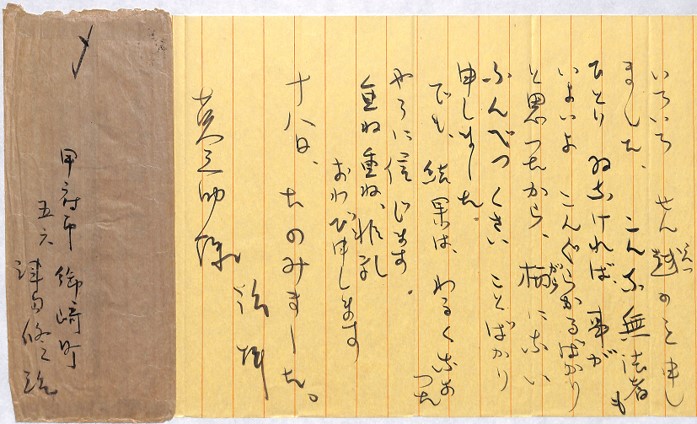 いろいろ せん越のこと申し
ました、こんな無法者も
ひとり ゐなければ、事が
いよいよ こんぐらかるばかり
と思つたから、柄にない
がら
ふんべつくさい ことばかり
申しました。
でも、結果は、わるくなかつた
やうに信じます。
重ね重ね、非礼
おわび申します
十八日、たのみました。
治拝
英之助様
〆
甲府市 御崎町
五六
津島修治